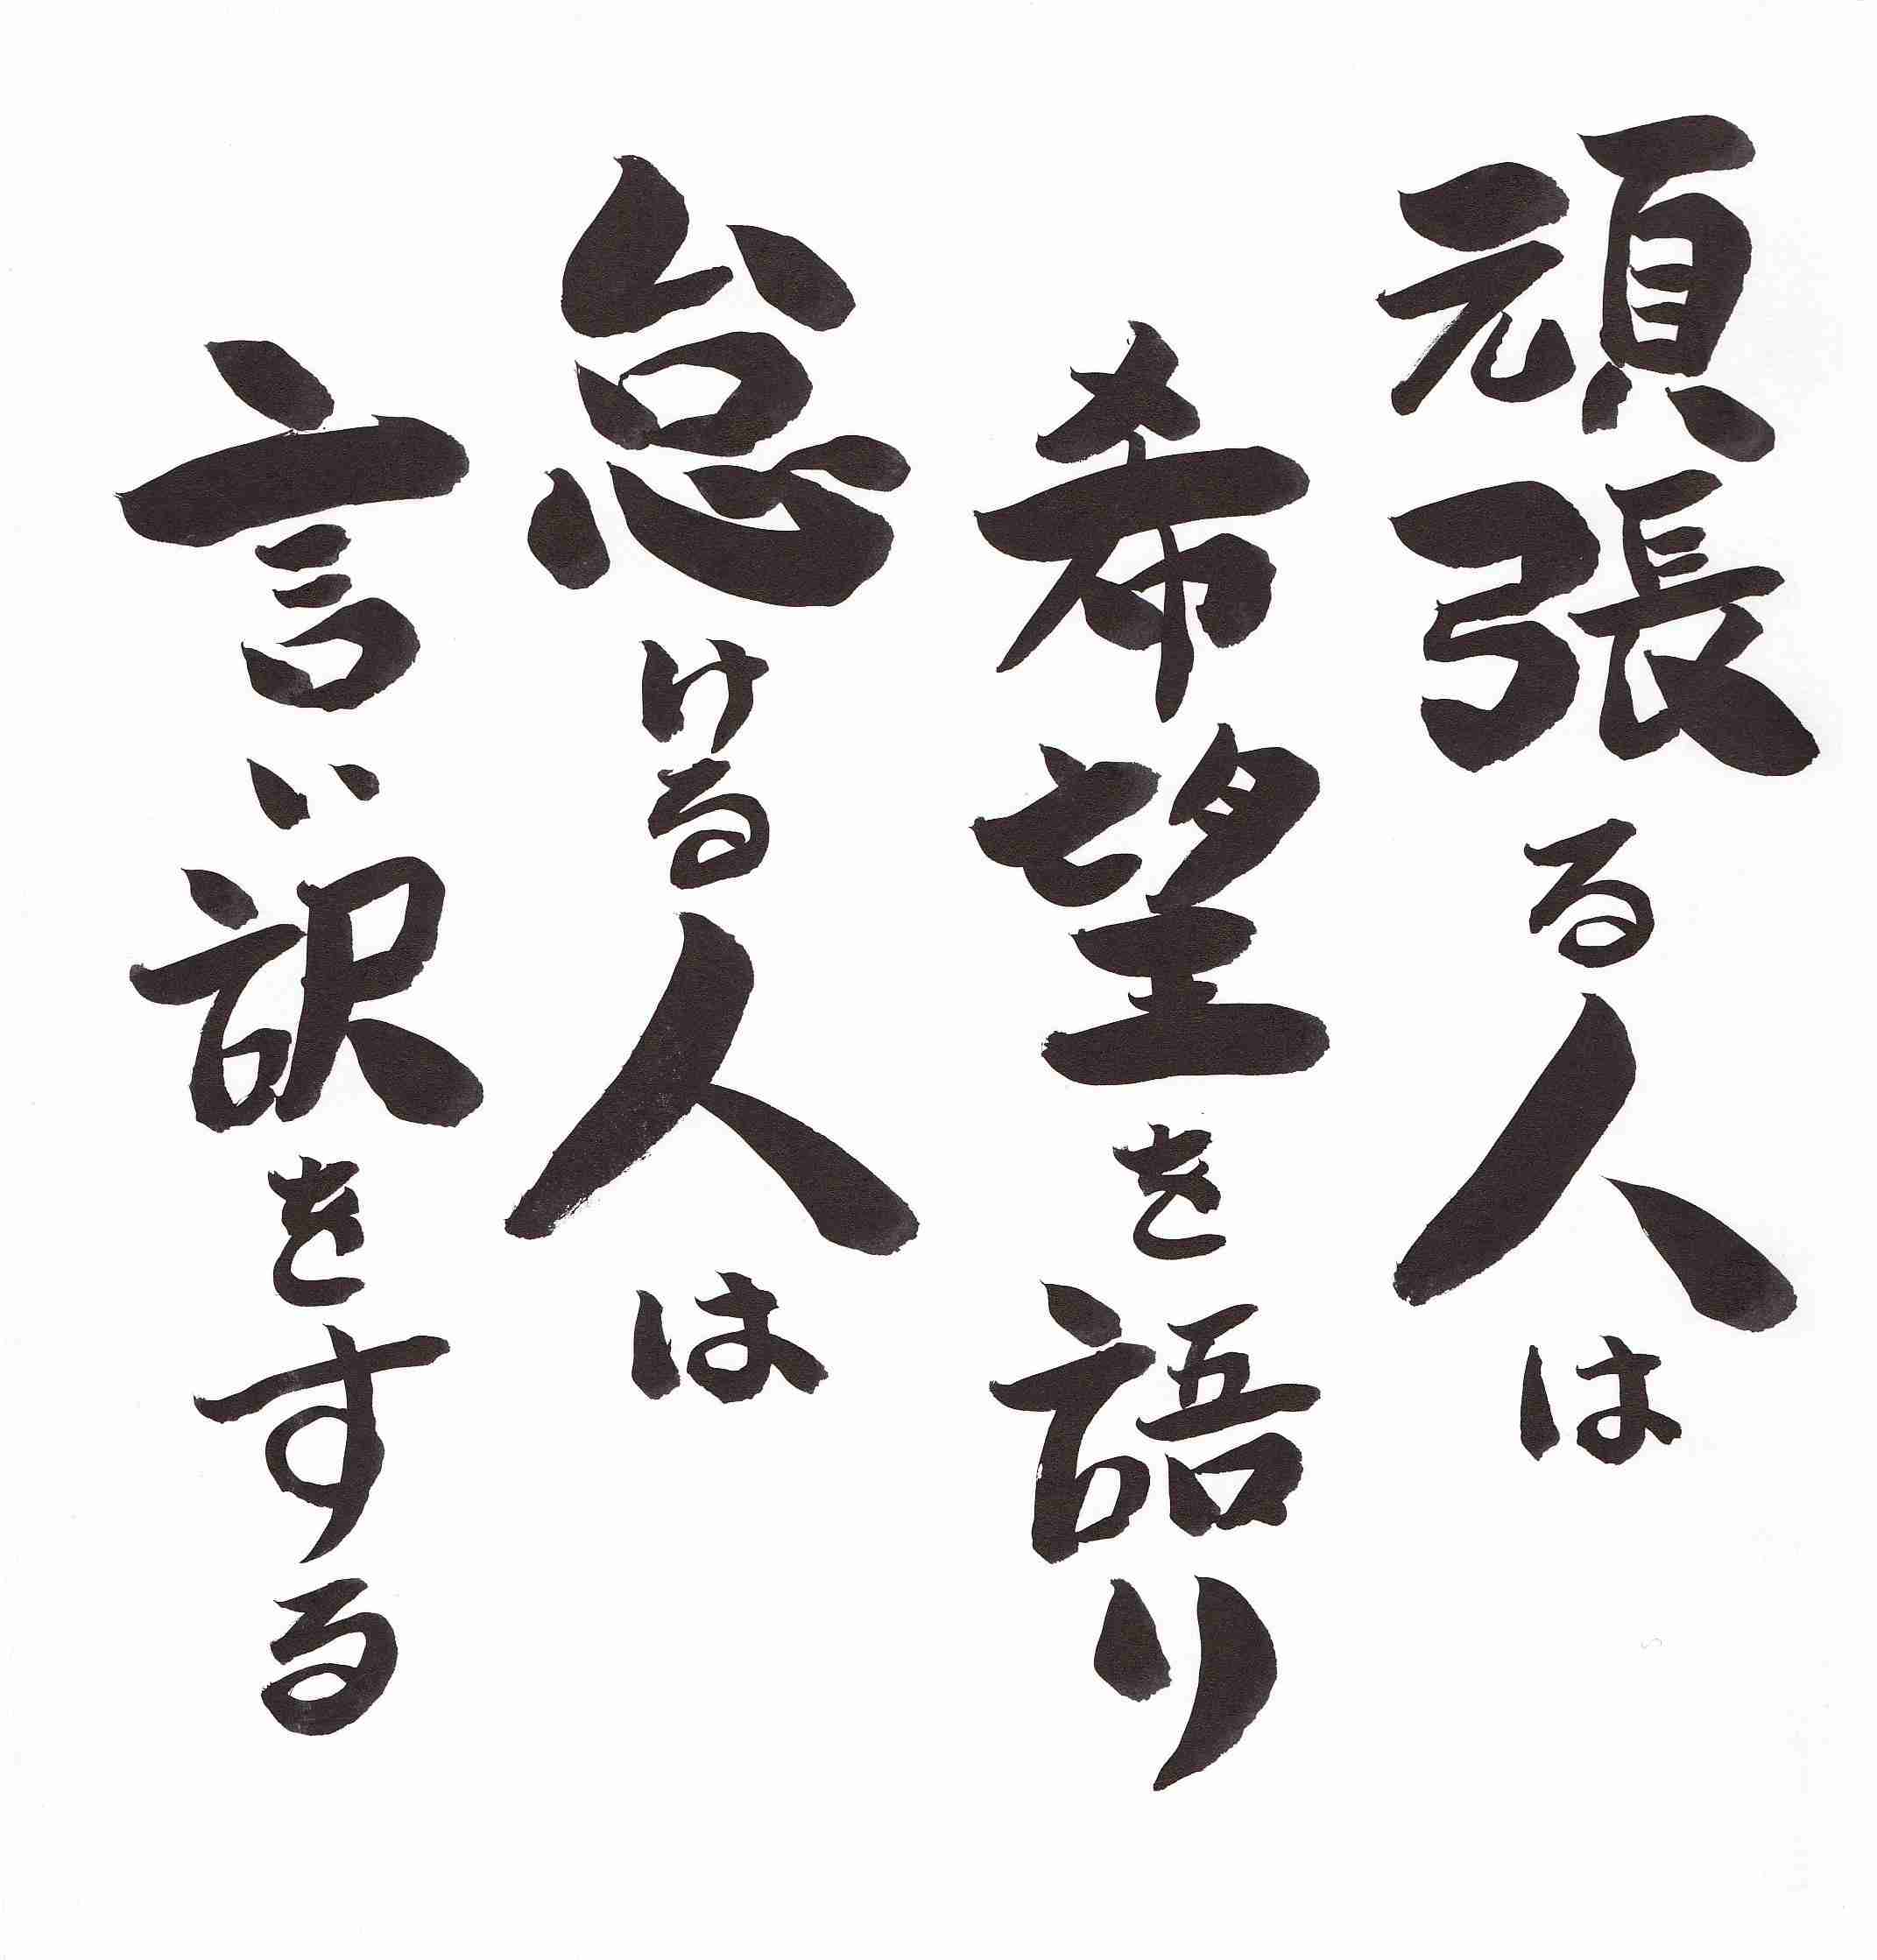 頑張る人は
希望を語り
怠ける人は
言い訳をする